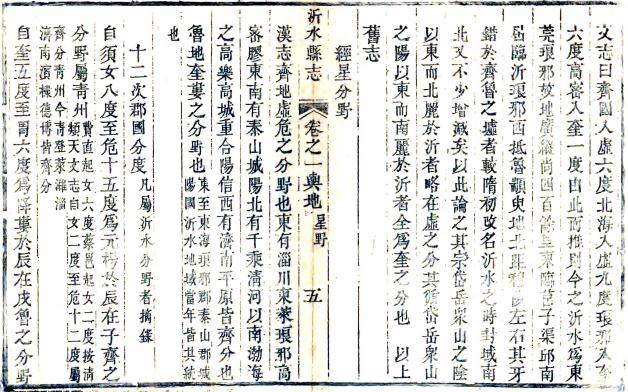 文志曰齊國入虛六度北海入虛九度琅邪入危
六度高密入奎一度由此而推則今之沂水為東
莞琅邪故地廣縱尚四百餘里東臨莒子渠邱南
屆臨沂琅邪西抵魯顓臾地北距穆陵左右其牙
錯於齊魯之墟者較隋初改名沂水之時封域南
北又不少增減矣以此論之其宗岱岳衆山之陰
以東而北麗於沂者略在虛之分其循岱岳衆山
之陽以東而南麗於沂者全為奎之分也 以上
舊志
沂水縣志 卷之一輿地 星野 五
經星分野
漢志齊地虛危之分野也東有淄川東萊琅邪高
密膠東南有泰山城陽北有千乘清河以南渤海
之高樂高城重合陽信西有濟南平原皆齊分也
魯地奎婁之分野也 東至東海琅邪郡泰山郡城
陽國沂水地域當年皆其統
也
十二次郡國分度 凡屬沂水分野者摘錄
自須女八度至危十五度為元枵於辰在子齊之
分野屬青州 費直起女六度蔡邕起女二度按清
類天文志自女二度至危十二度屬
齊分青州今青登萊濰淄
濟南濱棣德博皆齊分
自奎五度至胃六度為降婁於辰在戌魯之分野